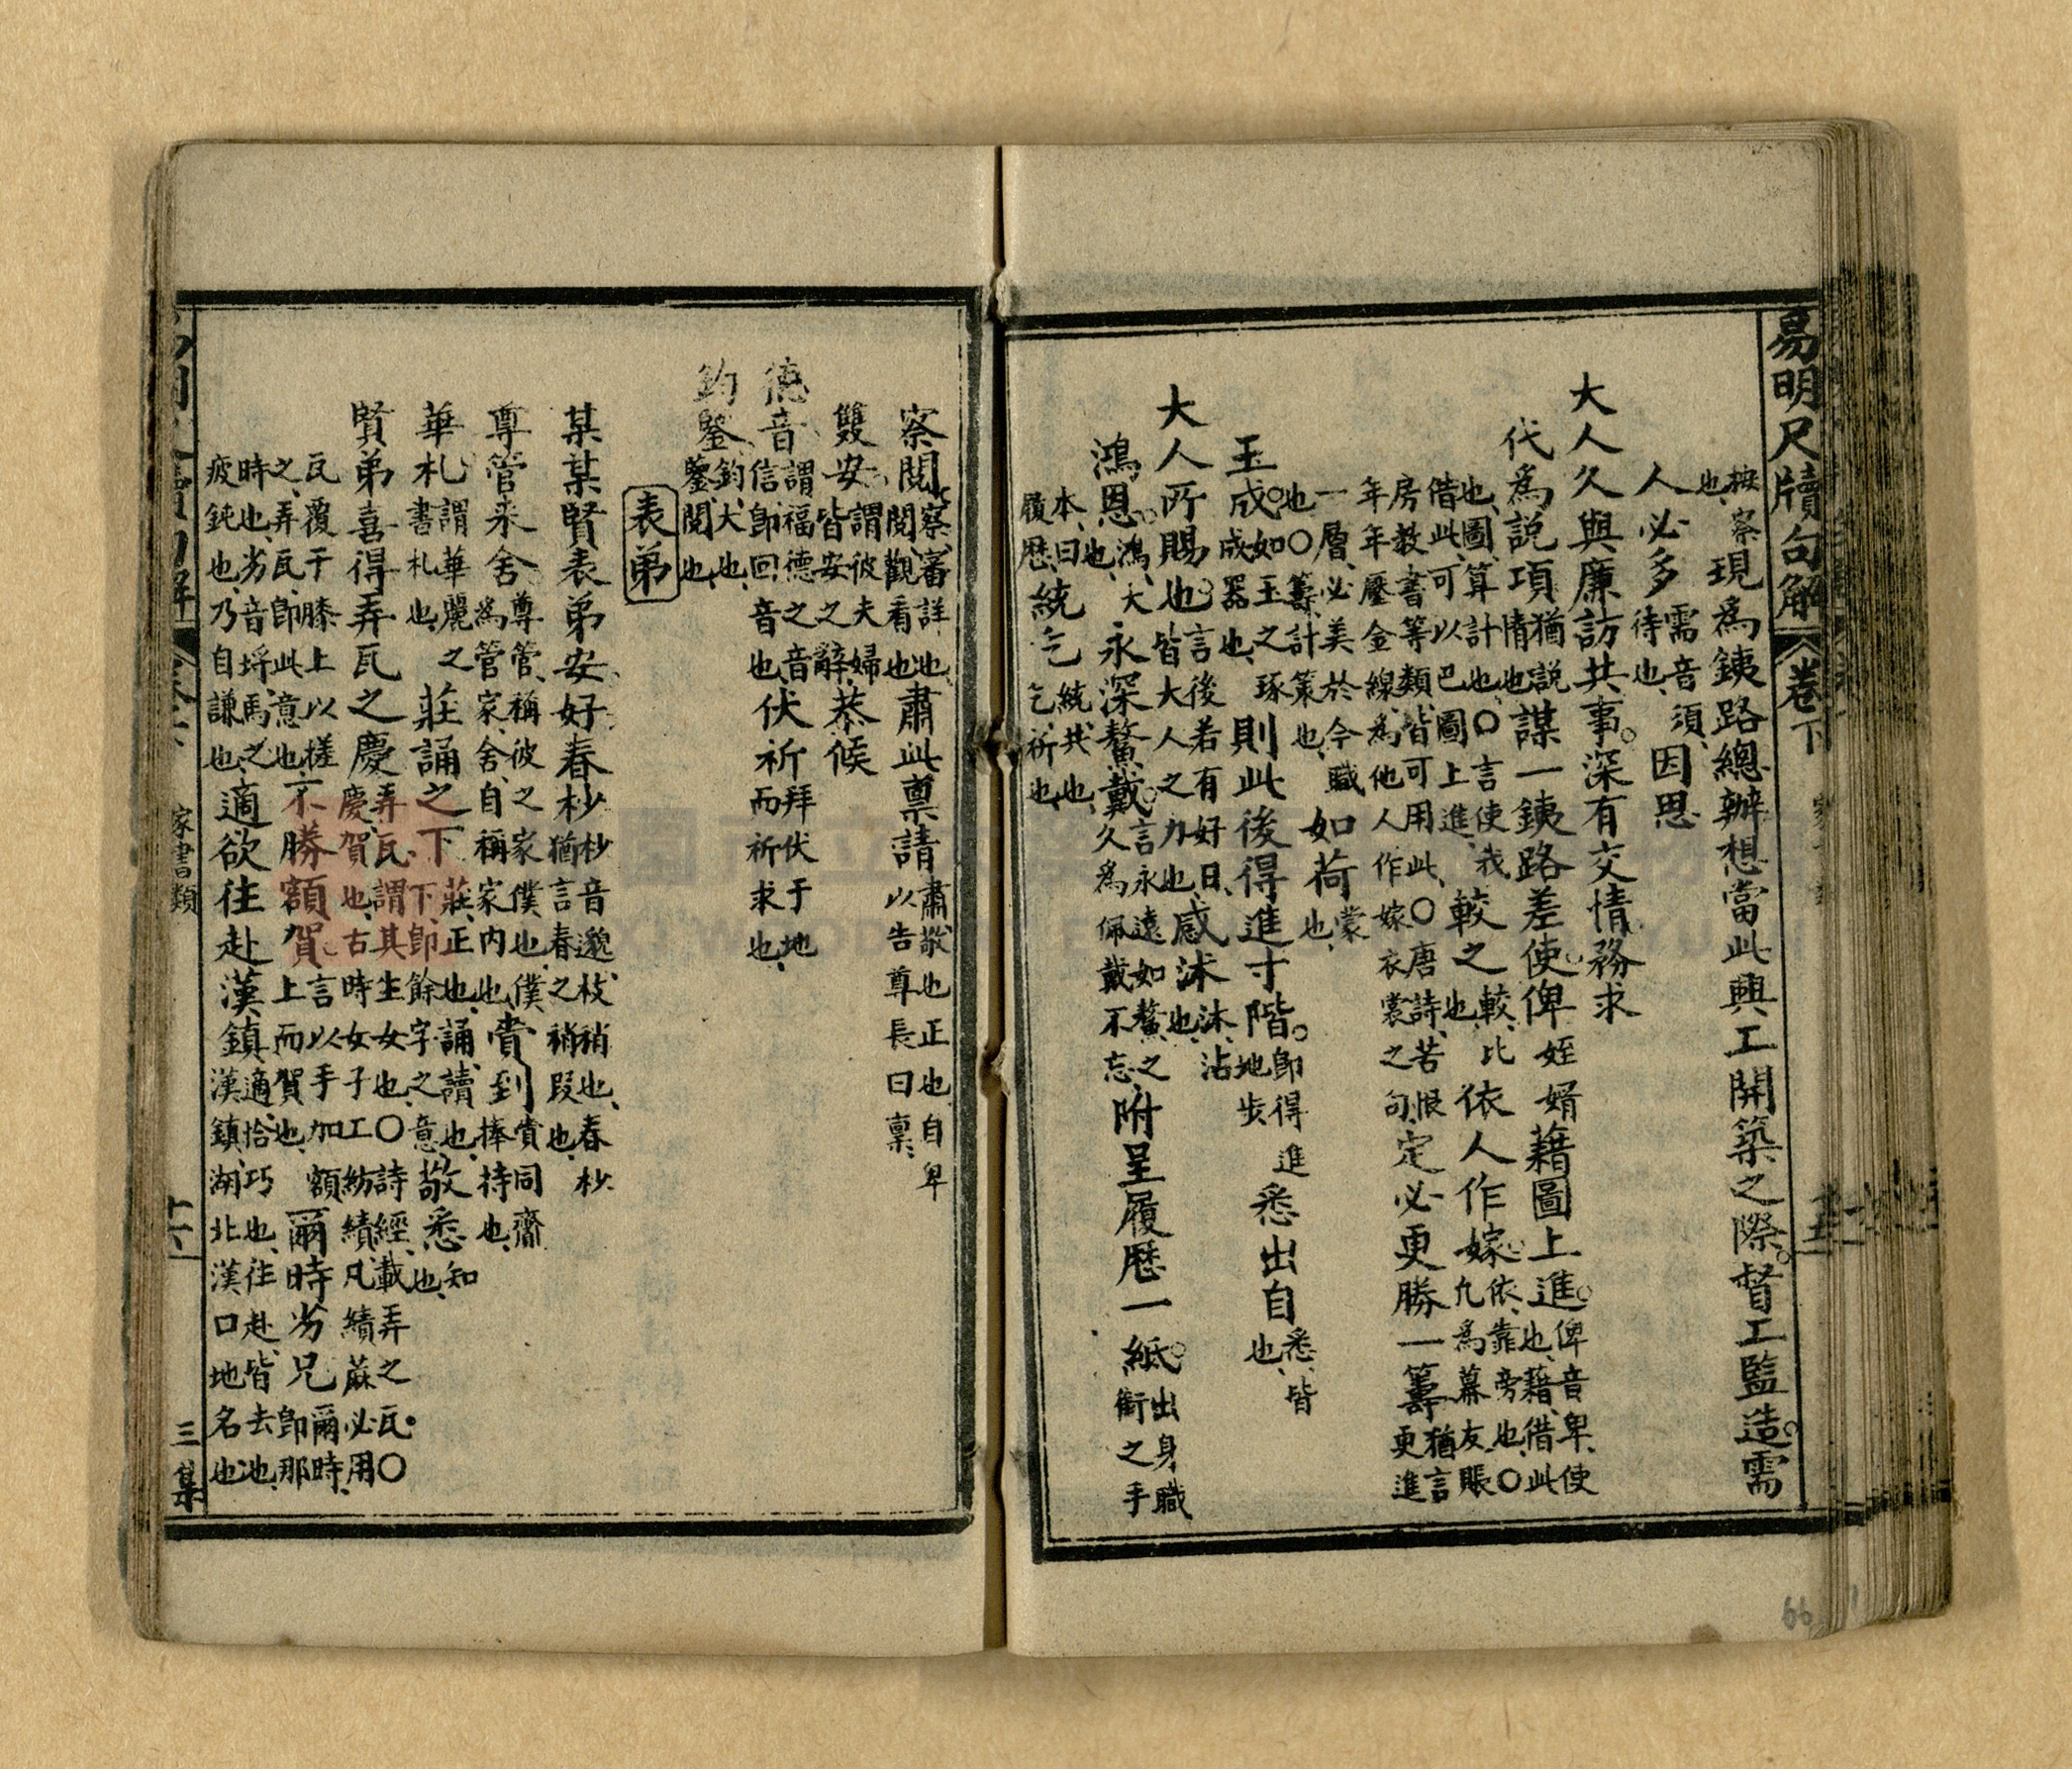 易明尺牘句解 卷下
按察也、現為銕路總辦想當此興工開築之際。督工監造。需
人必多需音須、待也、因思
大人久與廉訪共事。深有交情務求
代為說項猶說情也謀一銕路差使。俾姪婿藉圖上進。俾音卑、使也、藉、借此
也、圖、算計也、〇言使我借此可以巴圖上進、較之較、比也、依人作嫁。依、靠旁也、〇凡為幕友賬
房教書等類、皆可用此、〇唐詩、苦恨年年壓金線、為他人作嫁衣裳之句、定必更勝一籌猶言更進
一層、必美於今職也〇籌、計策也、如荷蒙也、
玉成。如玉之琢成器也、則此後得進寸階。即得進地步悉出自悉、皆也、
大人所賜也。言後若有好日、皆大人之力也、感沐沐、沾也、
鴻恩。鴻、大也、永深鰲戴。言永遠如鰲之久為佩戴不忘附呈履歷一紙。出身職銜之手
本、曰履歷、統乞統共也、乞、祈也、
察閱、察、審詳也、閱、觀看也肅此稟請肅敬也正也自卑以告尊長曰稟、
雙安、謂彼夫婦皆安之辭、恭候
德音謂福德之音信即回音也、伏祈拜伏于地而祈求也、
鈞鑒、鈞、大也、鑒、閱也、
表弟
某某賢表弟安好春杪杪音邈、枝稍也、春杪猶言春之稍叚也、
尊管来舍、尊管、稱彼之家僕也、僕為管家、舍、自稱家内也、賫到賫同齎捧持也、
華札謂華麗之書札也、莊誦之下莊、正也、誦、讀也、下、即餘字之意、敬悉知也、
賢弟喜得弄瓦之慶弄瓦、謂其生女也、〇詩經、載弄之瓦。〇慶賀也、古時女子工紡績凡績蔴必用
瓦覆于膝上以搓之、弄瓦、即此意也、不勝額賀、言以手加額上而賀也、爾時劣兄爾時即那
時也、劣音埒馬之疲鈍也、乃自謙也、適欲往赴漢鎮適、恰巧也、往赴、皆去也、漢鎮、湖北漢口地名也、
家書類 十六 三集